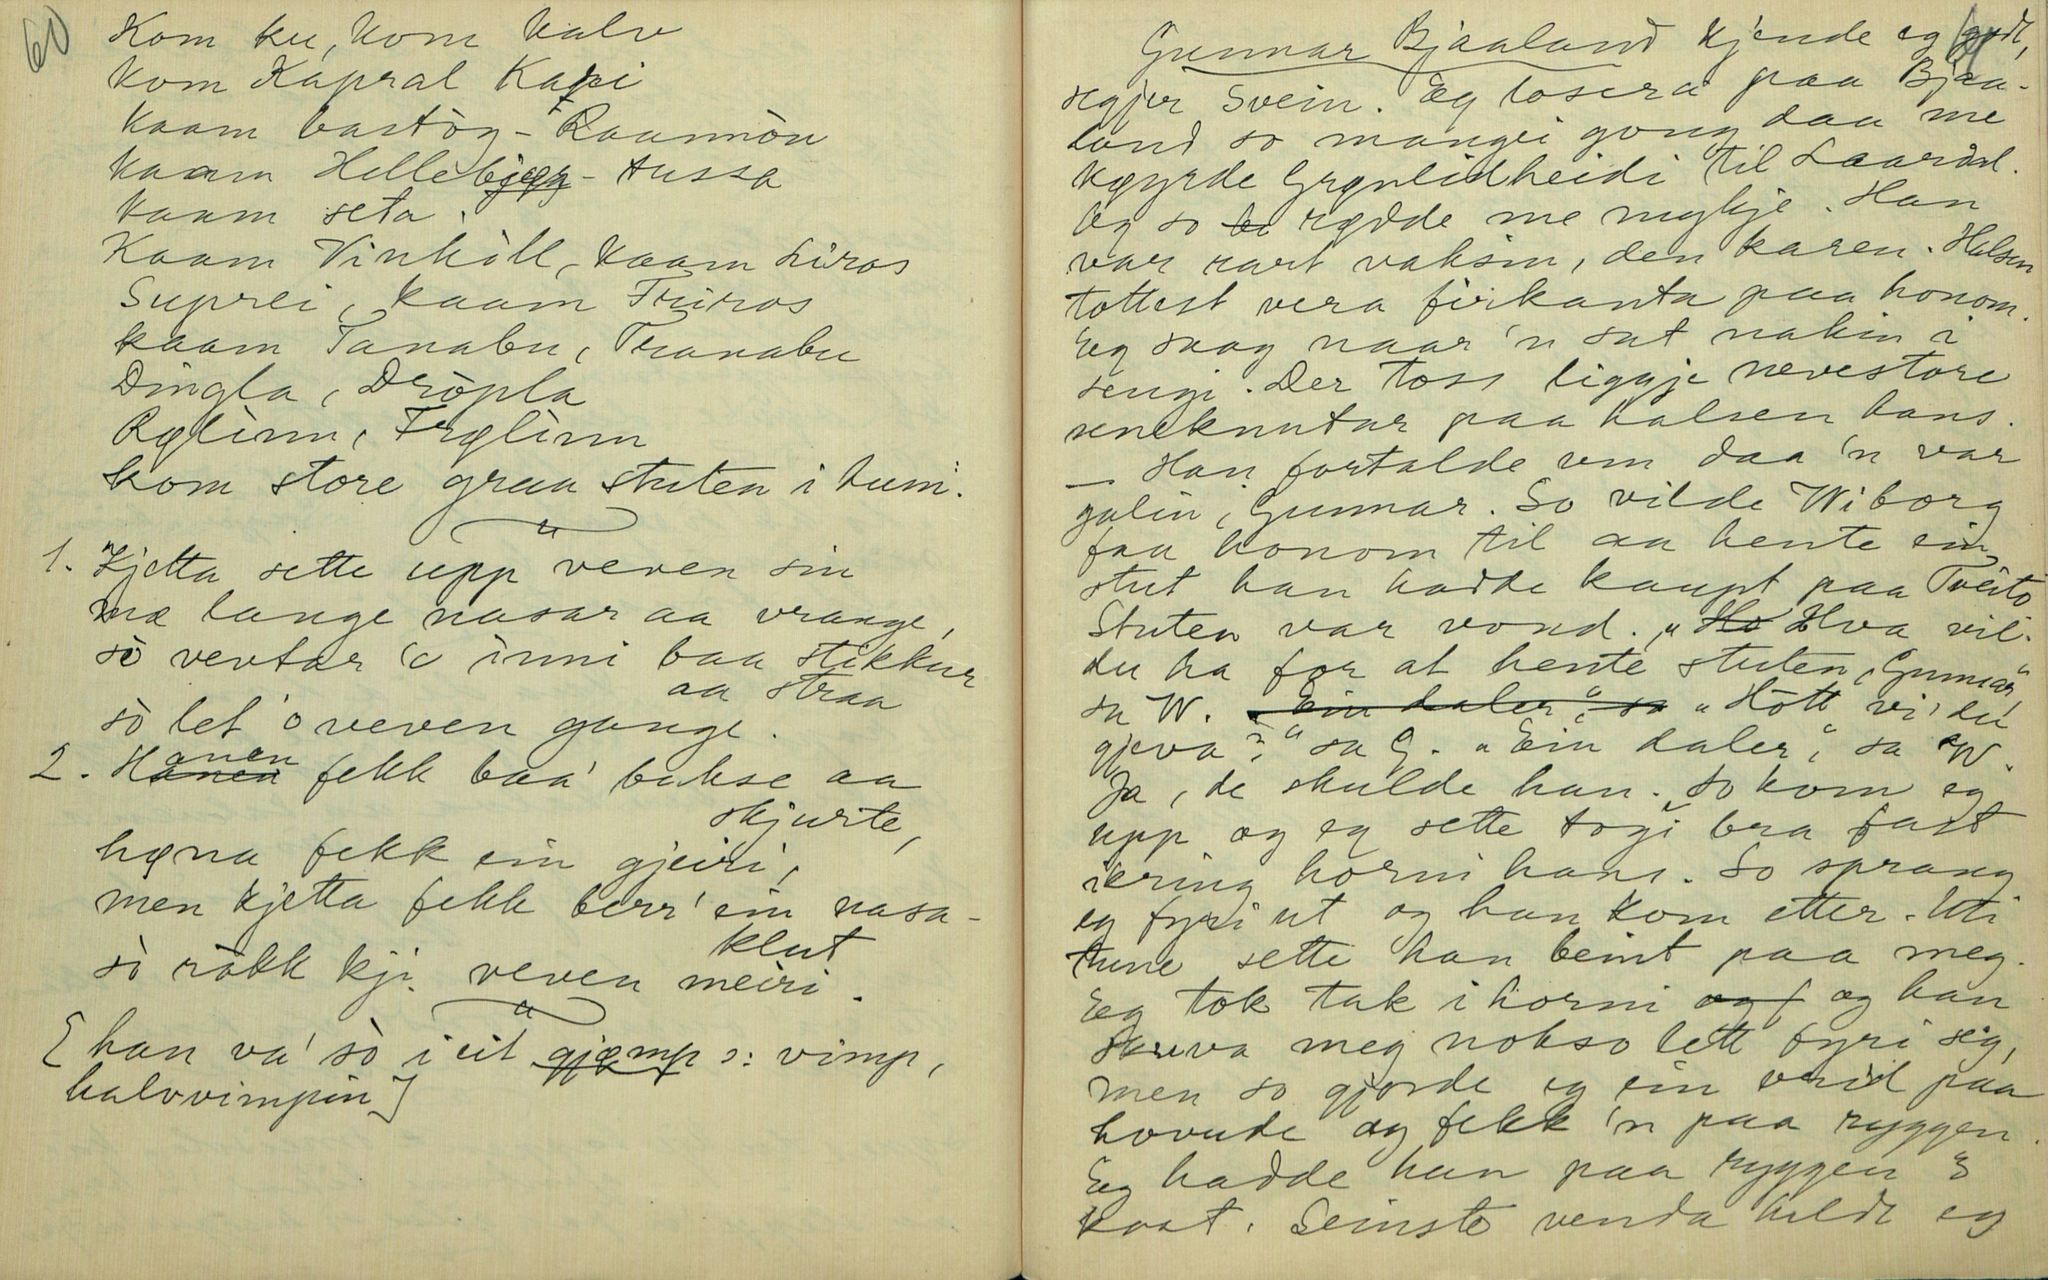 60
Kom ku, kom kalv
kom Kapral Kapi
kaam bastòg - Raamòn
kaam Hellebjegg - tussa
kaam seta.
Kaam Vinkòll, kaam Liros
Suprei, kaam Friros
kaam Tanabu, Tranabu
Dingla, Dròpla
Rølinn, Frølinn
kom store graa stuten i kumi.
1. "Kjetta sette upp veven sin
mæ lange nasar aa vrange,
sò ventar 'o inni baa stikkur
aa straa
sò let 'o veven gange.
2. Hanen fekk baa' bukse aa
skjurte,
høna fekk ein gjeiri,
men kjetta fekk berr' ein nasa-
klut
sò ròkk kji veven meiri.
[han va' sò i eit gjæmp ɔ: vimp,
halvvimpin]
Gunnar Bjaaland kjende eg godt,
segjer Svein. Eg losera paa Bjaa-
land so mangei gong daa me
køyrde Grønlidheidi til Laardal.
Og so rødde me mykje. Han
var rart vaksin, den karen. Halsen
tottest vera firkanta paa honom.
Eg saag naar 'n sat nakin i
sengi. Der toss liggje nevestore
seneknutar paa halsen hans.
— Han fortalde um daa 'n var
galin, Gunnar. So vilde Wiborg
faa honom til aa hente ein
stut han hadde kaupt paa Tveito
Stuten var vond. "Hva vil
du ha for at hente stuten, Gunnar"
sa W. Ein daler", sa "Hòtt vi' du
gjeva?" sa G. "Ein daler", sa W.
Ja, de skulde han. So kom eg
upp og eg sette togi bra fast
ikring horni hans. So sprang
eg fyri ut og han kom etter. Uti
tune sette han beint paa meg.
Eg tok tak i horni og han
skuva meg nokso lett fyri seg,
men so gjorde eg ein vrid paa
hovude og fekk 'n paa ryggen.
Eg hadde han paa ryggen 3
kast. Seinste venda heldt eg